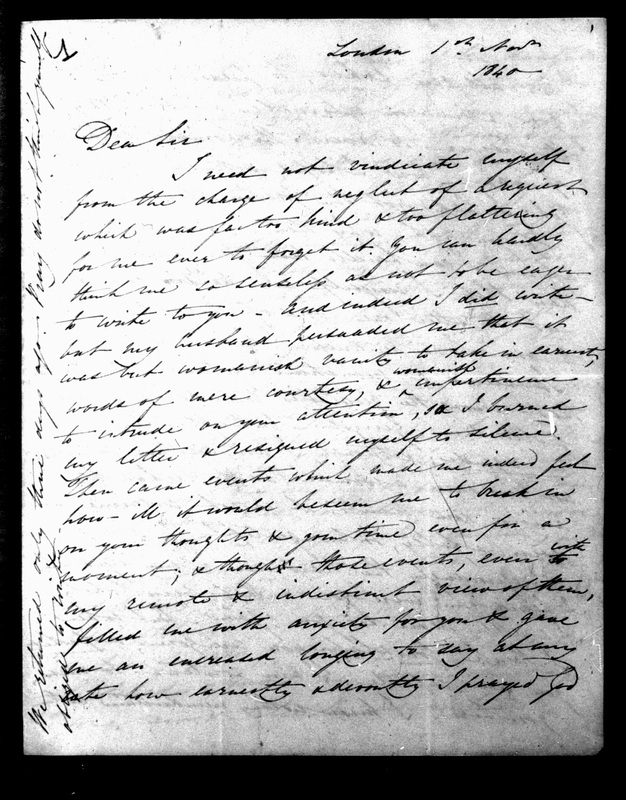 London 1st Novr
1840
Dear Sir
I need not vindicate myself
from the charge of neglect of a request
which was far too kind & too flattering
for me ever to forget it. You can hardly
think me so senseless as not to be eager
to write to you - and indeed I did write -
but my husband persuaded me that it
was but womanish vanity to take in earnest,
words of mere courtesy, & womanish impertinence
to intrude on your attention, so I burned
my letter & resigned myself to silence.
Then came events which made me indeed feel
how ill it would beseem me to break in
on your thoughts & your time even for a
moment; & though those events, even with
my remote & indistinct view of them,
filled me with anxiety for you & gave
me an increased longing to say at any
rate how earnestly & devoutly I prayed God
We returned only three days ago. Pray do not think yourself
obliged to